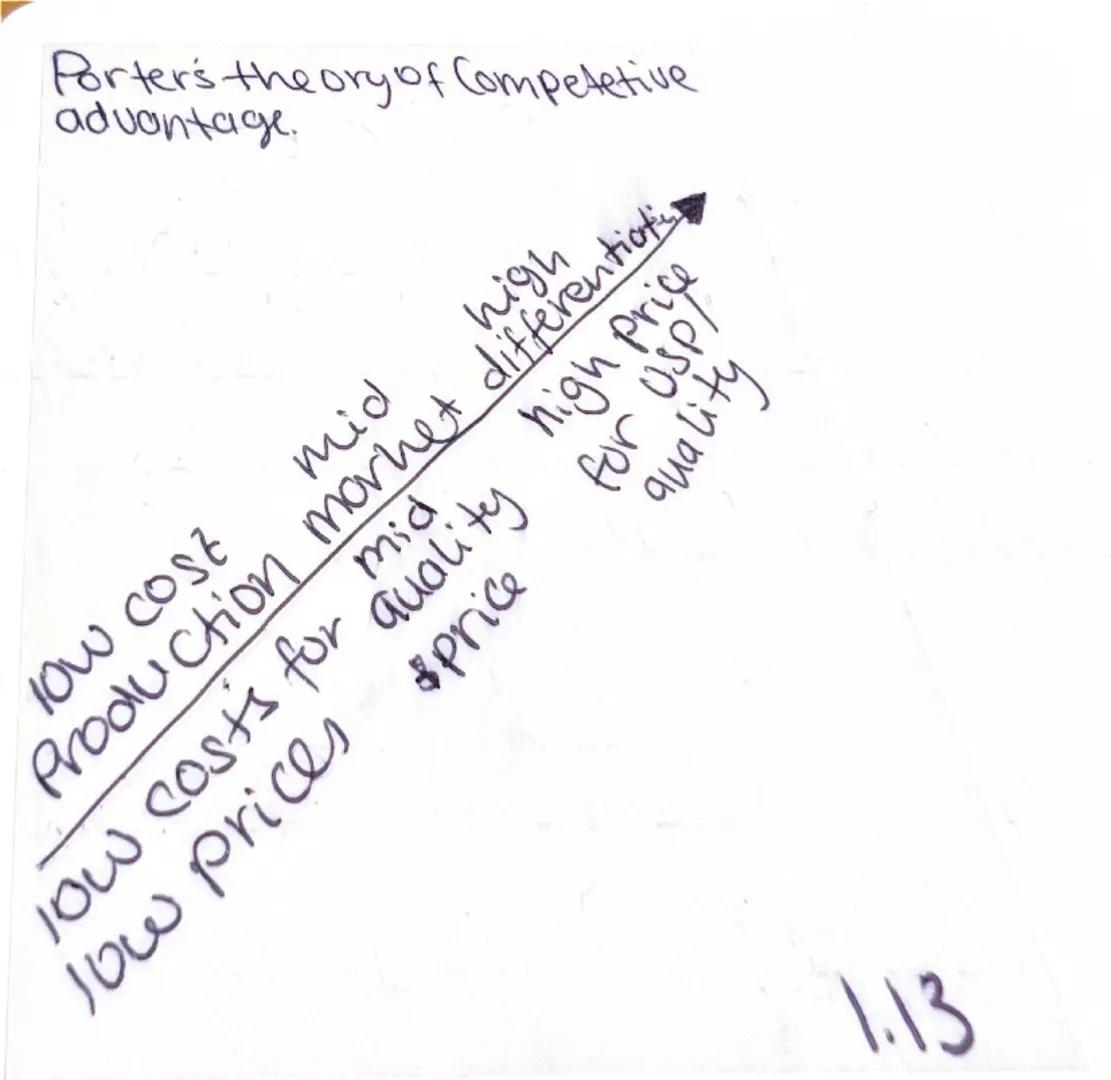 Porter's theory of Competetive
advantage.
low cost
Production
mid
market
high
differentiatio
low costs for
low prices
mid
quality
&price
high price
for USP/
quality
1.13